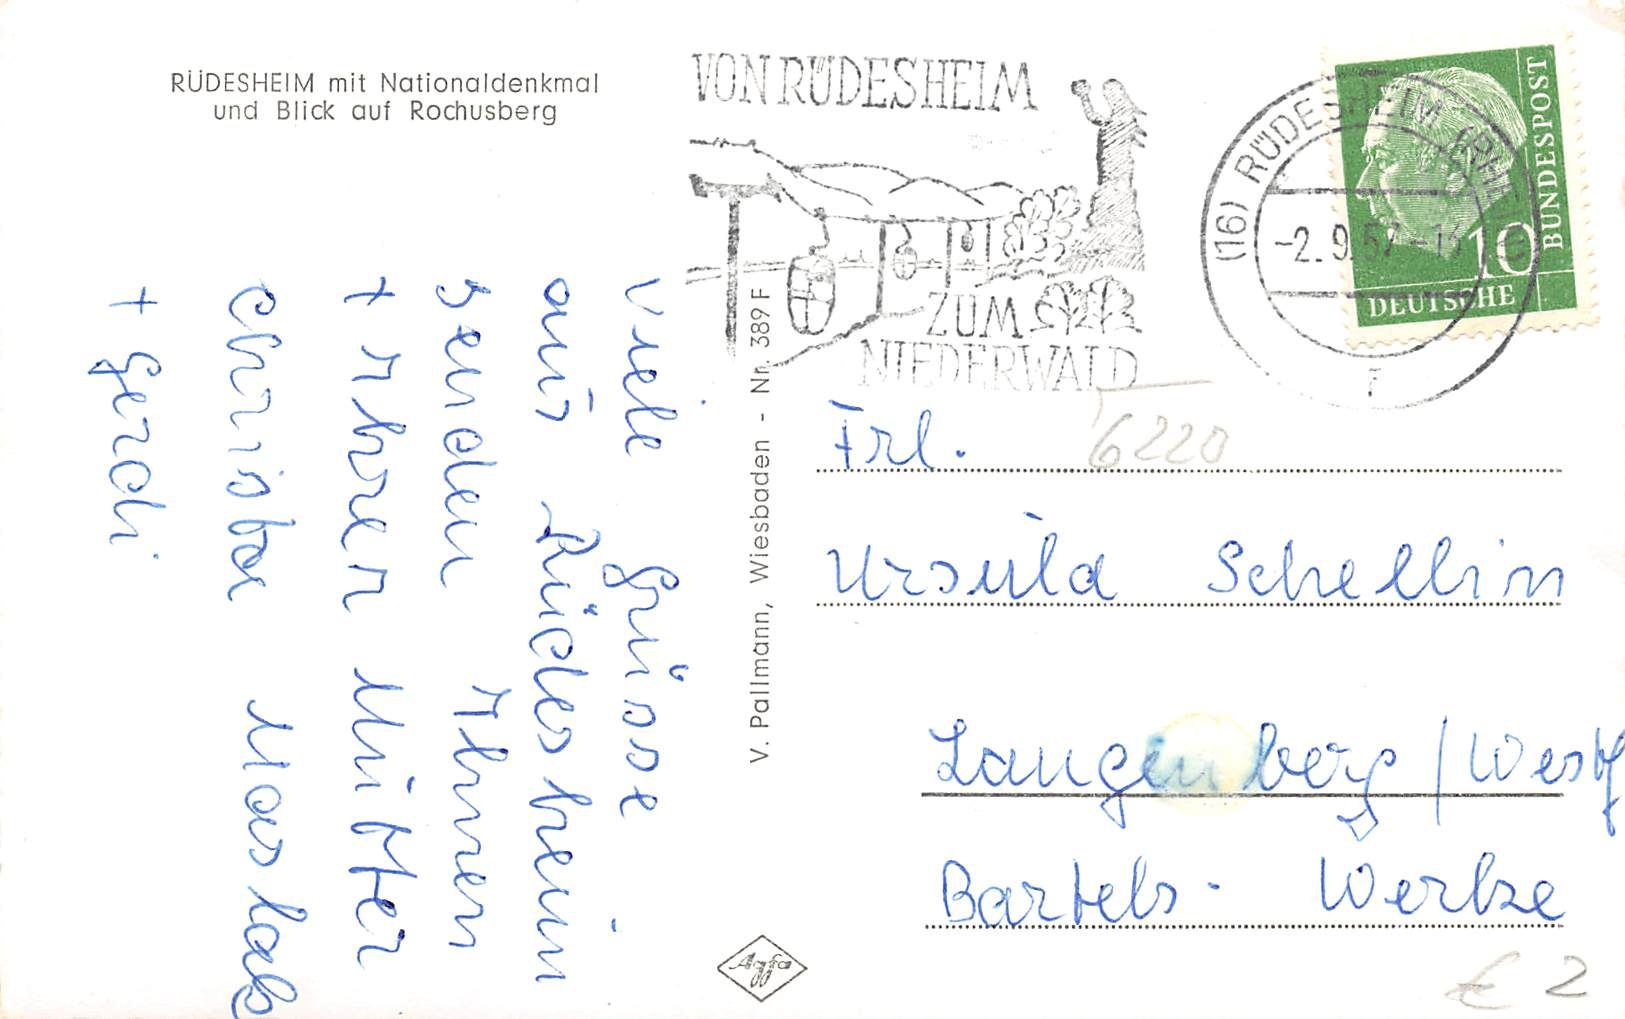 RÜDESHEIM mit Nationaldenkmal
und Blick auf Rochusberg
Viele Grüsse
aus Rüdesheim
senden Ihnen
+ Ihrer Mutter
Christa Maslak
+ Gerdi
V. Pallmann, Wiesbaden - Nr. 389 F
Agfa
VON RÜDESHEIM
ZUM
NIEDERWALD
(16) RÜDESHEIM (RHEIN)
-2.9.57
F
10
BUNDESPOST
DEUTSCHE
6220
Frl.
Ursula Schellin
Langenberg / Westf
Bartels-Werke
€ 2